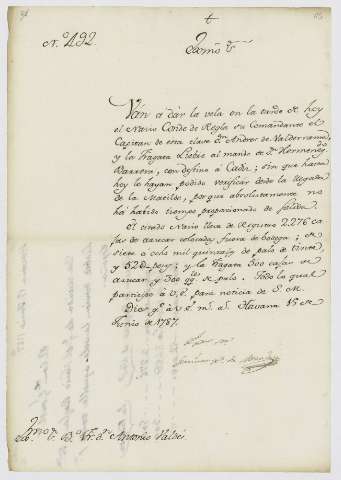 †
N.º 492.
Exmõ S.ʳ
Ván à dár la vela en la tarde de hoy
el Navio Conde de Regla su Comandante el
Capitan de esta clase D.ⁿ Andres de Valderrama,
y la Fragata Liebre al mando de D.ⁿ Hermenegᵈᵒ
Barrera, con destino à Cadiz; sin que hasta
hoy lo hayan podido verificar desde la llegada
de la Matilde, porque absolutamente no
há habido tiempo proporcionado de salida.
El citado Navio lleva de Registro 2.276 ca
jas de azucar colocadas fuera de bodega; de
siete à ocho mil quintales de palo de tinte,
y 52 pesos; y la Fragata 300 cajas de
azucar y 300 qq.ˡᵉˢ de palo. Todo lo qual
participo à V.E. para noticia de S.M.
Dios g.ᵉ à V.E. m.ˢ a.ˢ Havana 15 de
Junio de 1787.
Exmõ. S.ʳ B.º Fr. D.ⁿ Antonio Valdés.